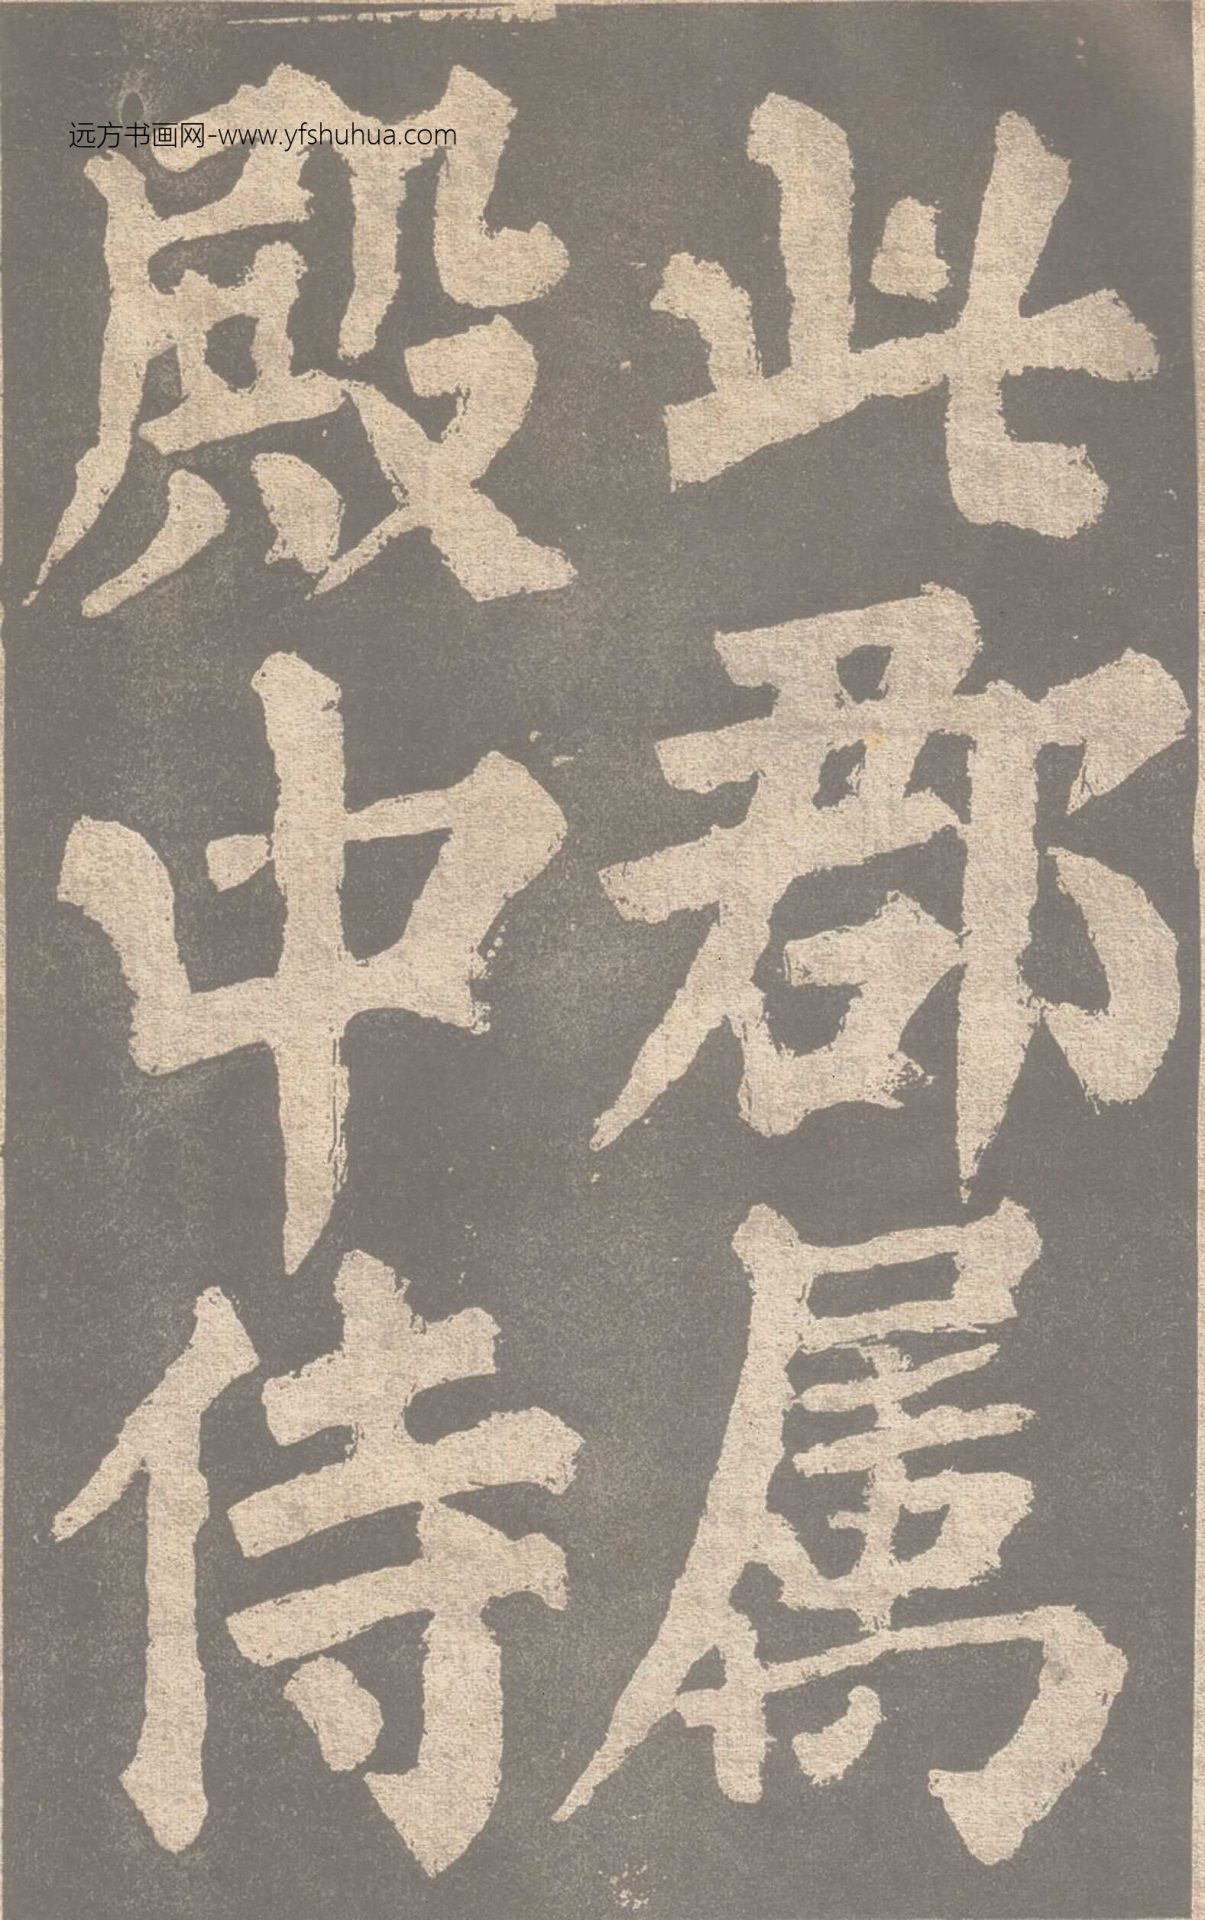 此郡属
殿中侍
远方书画网-www.yfshuhua.com